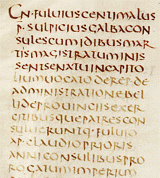 CN·FULUIUSCENTIMALUS
P·SULPICIUSGALBACON
SULESCUMIDIBUSMAR
TISMAGISTRATUMINIS
SENTSENATUINCAPITO
LIUMUOCATODEREP·DE
ADMINISTRATIONEBEL
LIDEPROUINCIISEXER
CITIBUSQUEPATRESCON
SULUERUNTQ·FULUIO
AP·CLAUDIOPRIORIS
ANNICONSULIBUSPRO
ROGATUMIMPERIUM